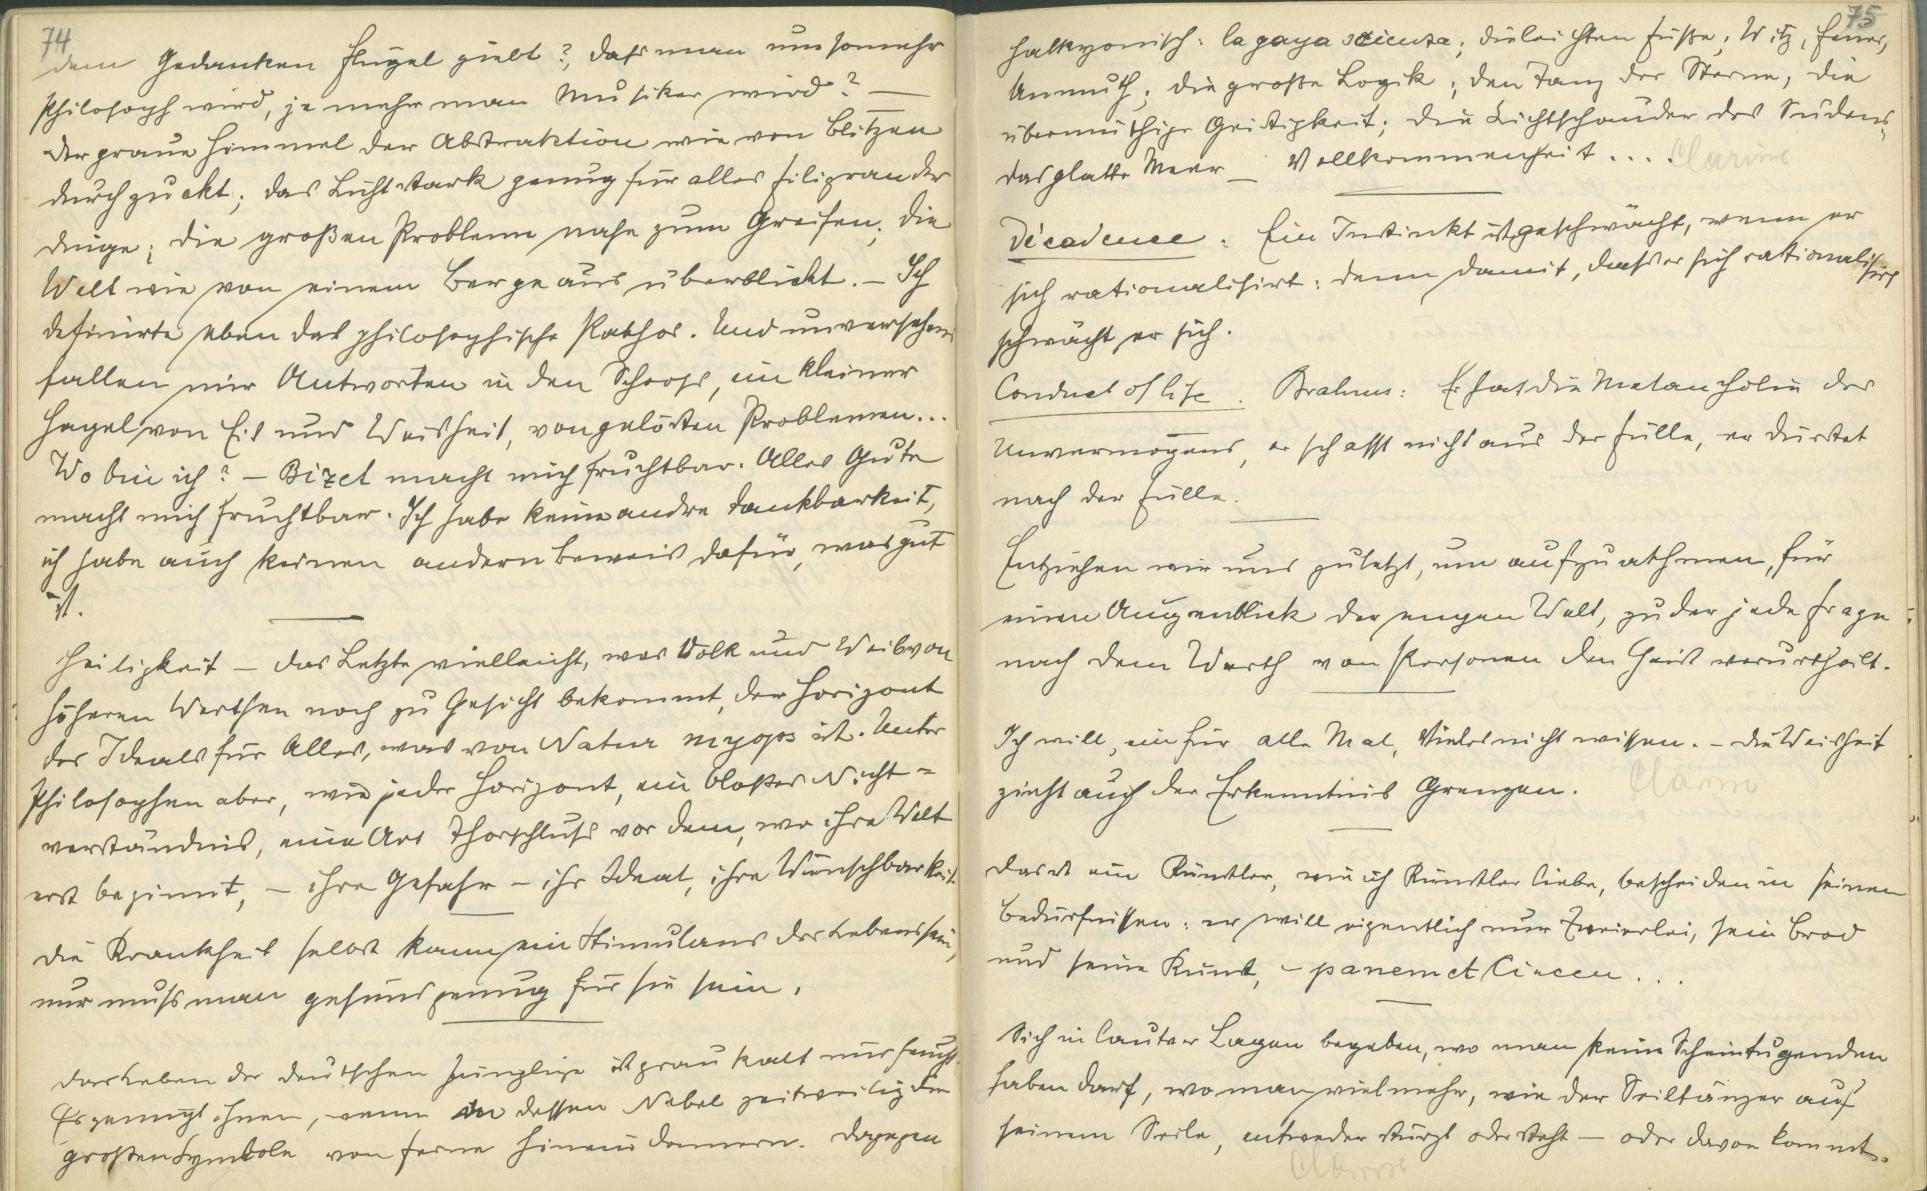 74
dem Gedanken Flügel giebt?, daß man um somehr
Philosoph wird, je mehr man Musiker wird? —
Der graue Himmel der Abstraktion wie von Blitzen
durchzuckt; das Licht stark genug für alles Filigran der
Dinge; die großen Probleme nahe zum Greifen; die
Welt wie von einem Berge aus überblickt. — Ich
definirte eben das philosophische Pathos. Und unversehens
fallen mir Antworten in den Schooß, ein kleiner
Hagel von Eis und Weisheit, von gelösten Problemen...
Wo bin ich? — Bizet macht mich fruchtbar. Alles Gute
macht mich fruchtbar. Ich habe keine andre Dankbarkeit,
ich habe auch keinen andern Beweis dafür, was gut
ist.
Heiligkeit — das Letzte vielleicht, was Volk und Weib von
höheren Werthen noch zu Gesicht bekommt, der Horizont
des Ideals für Alles, was von Natur myops ist. Unter
Philosophen aber, wie jeder Horizont, ein bloßes Nicht-
verständnis, eine Art Thorschluß vor dem, wo ihre Welt
erst beginnt, — ihre Gefahr — ihr Ideal, ihre Wünschbarkeit.
Die Krankheit selbst kann ein Stimulans des Lebens sein,
nur muß man gesund genug für sie sein.
Das Leben der deutschen Jünglinge ist grau kalt und feucht.
Es genügt ihnen, wenn in dessen Nebel zeitweilig die
großen Symbole von ferne hinein dämmern. Dagegen
75
halkyonisch: la gaya scienza; die leichten Füße; Witz, Feuer,
Anmuth; die große Logik; den Tanz der Sterne, die
übermüthige Geistigkeit; die Lichtschauder des Südens,
das glatte Meer — Vollkommenheit .... Clarins
Décadence: Ein Instinkt ist geschwächt, wenn er
sich rationalisirt: denn damit, daß er sich rationalisirt
schwächt er sich.
Conduct of life. Brahms: Er hat die Melancholie des
Unvermögens, er schafft nicht aus der Fülle, er dürstet
nach der Fülle.
Entziehen wir uns zuletzt, um aufzuathmen, für
einen Augenblick der engen Welt, zu der jede Frage
nach dem Werth von Personen den Geist verurtheilt.
Ich will, ein für alle Mal, Vieles nicht wissen. — Die Weisheit
zieht auch der Erkenntnis Grenzen.
Das ist ein Künstler, wie ich Künstler liebe, bescheiden in seinen
Bedürfnissen: er will eigentlich nur Zweierlei, sein Brod
und seine Kunst, — panem et Circen...
Sich in lauter Lagen begeben, wo man keine Scheintugenden
haben darf, wo man vielmehr, wie der Seiltänzer auf
seinem Seile, entweder stürzt oder steht — oder davon kommt.